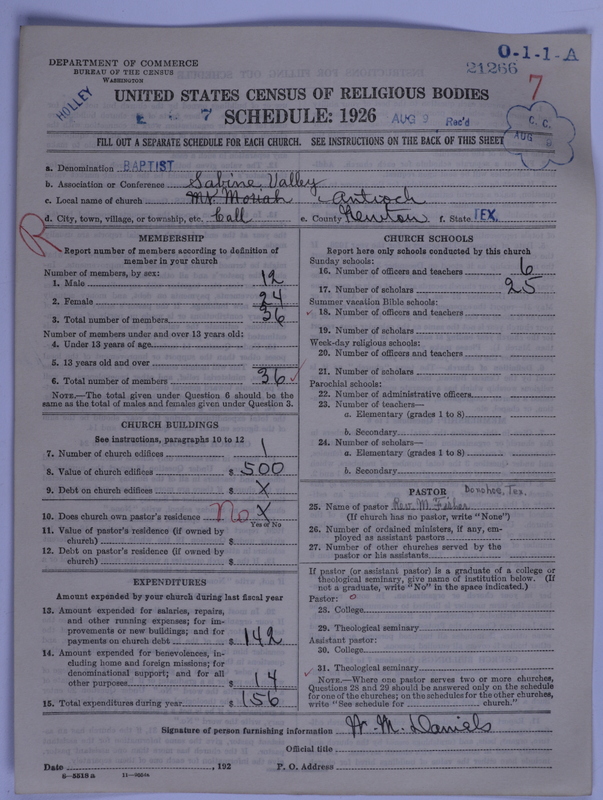 O-1-1-A
DEPARTMENT OF COMMERCE
BUREAU OF THE CENSUS
WASHINGTON
21266
7
HOLLEY
UNITED STATES CENSUS OF RELIGIOUS BODIES
7 SCHEDULE: 1926 AUG 9 Rec'd
C. C.
AUG 9
FILL OUT A SEPARATE SCHEDULE FOR EACH CHURCH. SEE INSTRUCTIONS ON THE BACK OF THIS SHEET
a. Denomination BAPTIST
b. Association or Conference Sabine Valley
c. Local name of church Mt. Moriah Antioch
d. City, town, village, or township, etc. Call e. County Newton f. State TEX.
R
MEMBERSHIP
Report number of members according to definition of
member in your church
Number of members, by sex:
1. Male 12
2. Female 24
3. Total number of members 36
Number of members under and over 13 years old:
4. Under 13 years of age
5. 13 years old and over
6. Total number of members 36 ✓
NOTE.—The total given under Question 6 should be the
same as the total of males and females given under Question 3.
CHURCH BUILDINGS
See instructions, paragraphs 10 to 12
7. Number of church edifices 1
8. Value of church edifices $ 500
9. Debt on church edifices $ X
10. Does church own pastor's residence No X
Yes or No
11. Value of pastor's residence (if owned by
church) $
12. Debt on pastor's residence (if owned by
church) $
EXPENDITURES
Amount expended by your church during last fiscal year
13. Amount expended for salaries, repairs,
and other running expenses; for im-
provements or new buildings; and for
payments on church debt $ 142
14. Amount expended for benevolences, in-
cluding home and foreign missions; for
denominational support; and for all
other purposes $ 14
15. Total expenditures during year $ 156
CHURCH SCHOOLS
Report here only schools conducted by this church
Sunday schools:
16. Number of officers and teachers 6
17. Number of scholars 25
Summer vacation Bible schools:
✓ 18. Number of officers and teachers
19. Number of scholars
Week-day religious schools:
20. Number of officers and teachers
21. Number of scholars
Parochial schools:
22. Number of administrative officers
23. Number of teachers—
a. Elementary (grades 1 to 8)
b. Secondary
24. Number of scholars—
a. Elementary (grades 1 to 8)
b. Secondary
PASTOR Donohoe, Tex.
25. Name of pastor Rev. M. Fisher
(If church has no pastor, write "None")
26. Number of ordained ministers, if any, em-
ployed as assistant pastors
27. Number of other churches served by the
pastor or his assistants
If pastor (or assistant pastor) is a graduate of a college or
theological seminary, give name of institution below. (If
not a graduate, write "No" in the space indicated.)
Pastor: o
28. College
29. Theological seminary
Assistant pastor:
30. College
✓ 31. Theological seminary
NOTE.—Where one pastor serves two or more churches,
Questions 28 and 29 should be answered only on the schedule
for one of the churches; on the schedules for the other churches,
write "See schedule for church."
Signature of person furnishing information W. M. Daniels
Official title
Date , 192 P. O. Address
8—5518 a